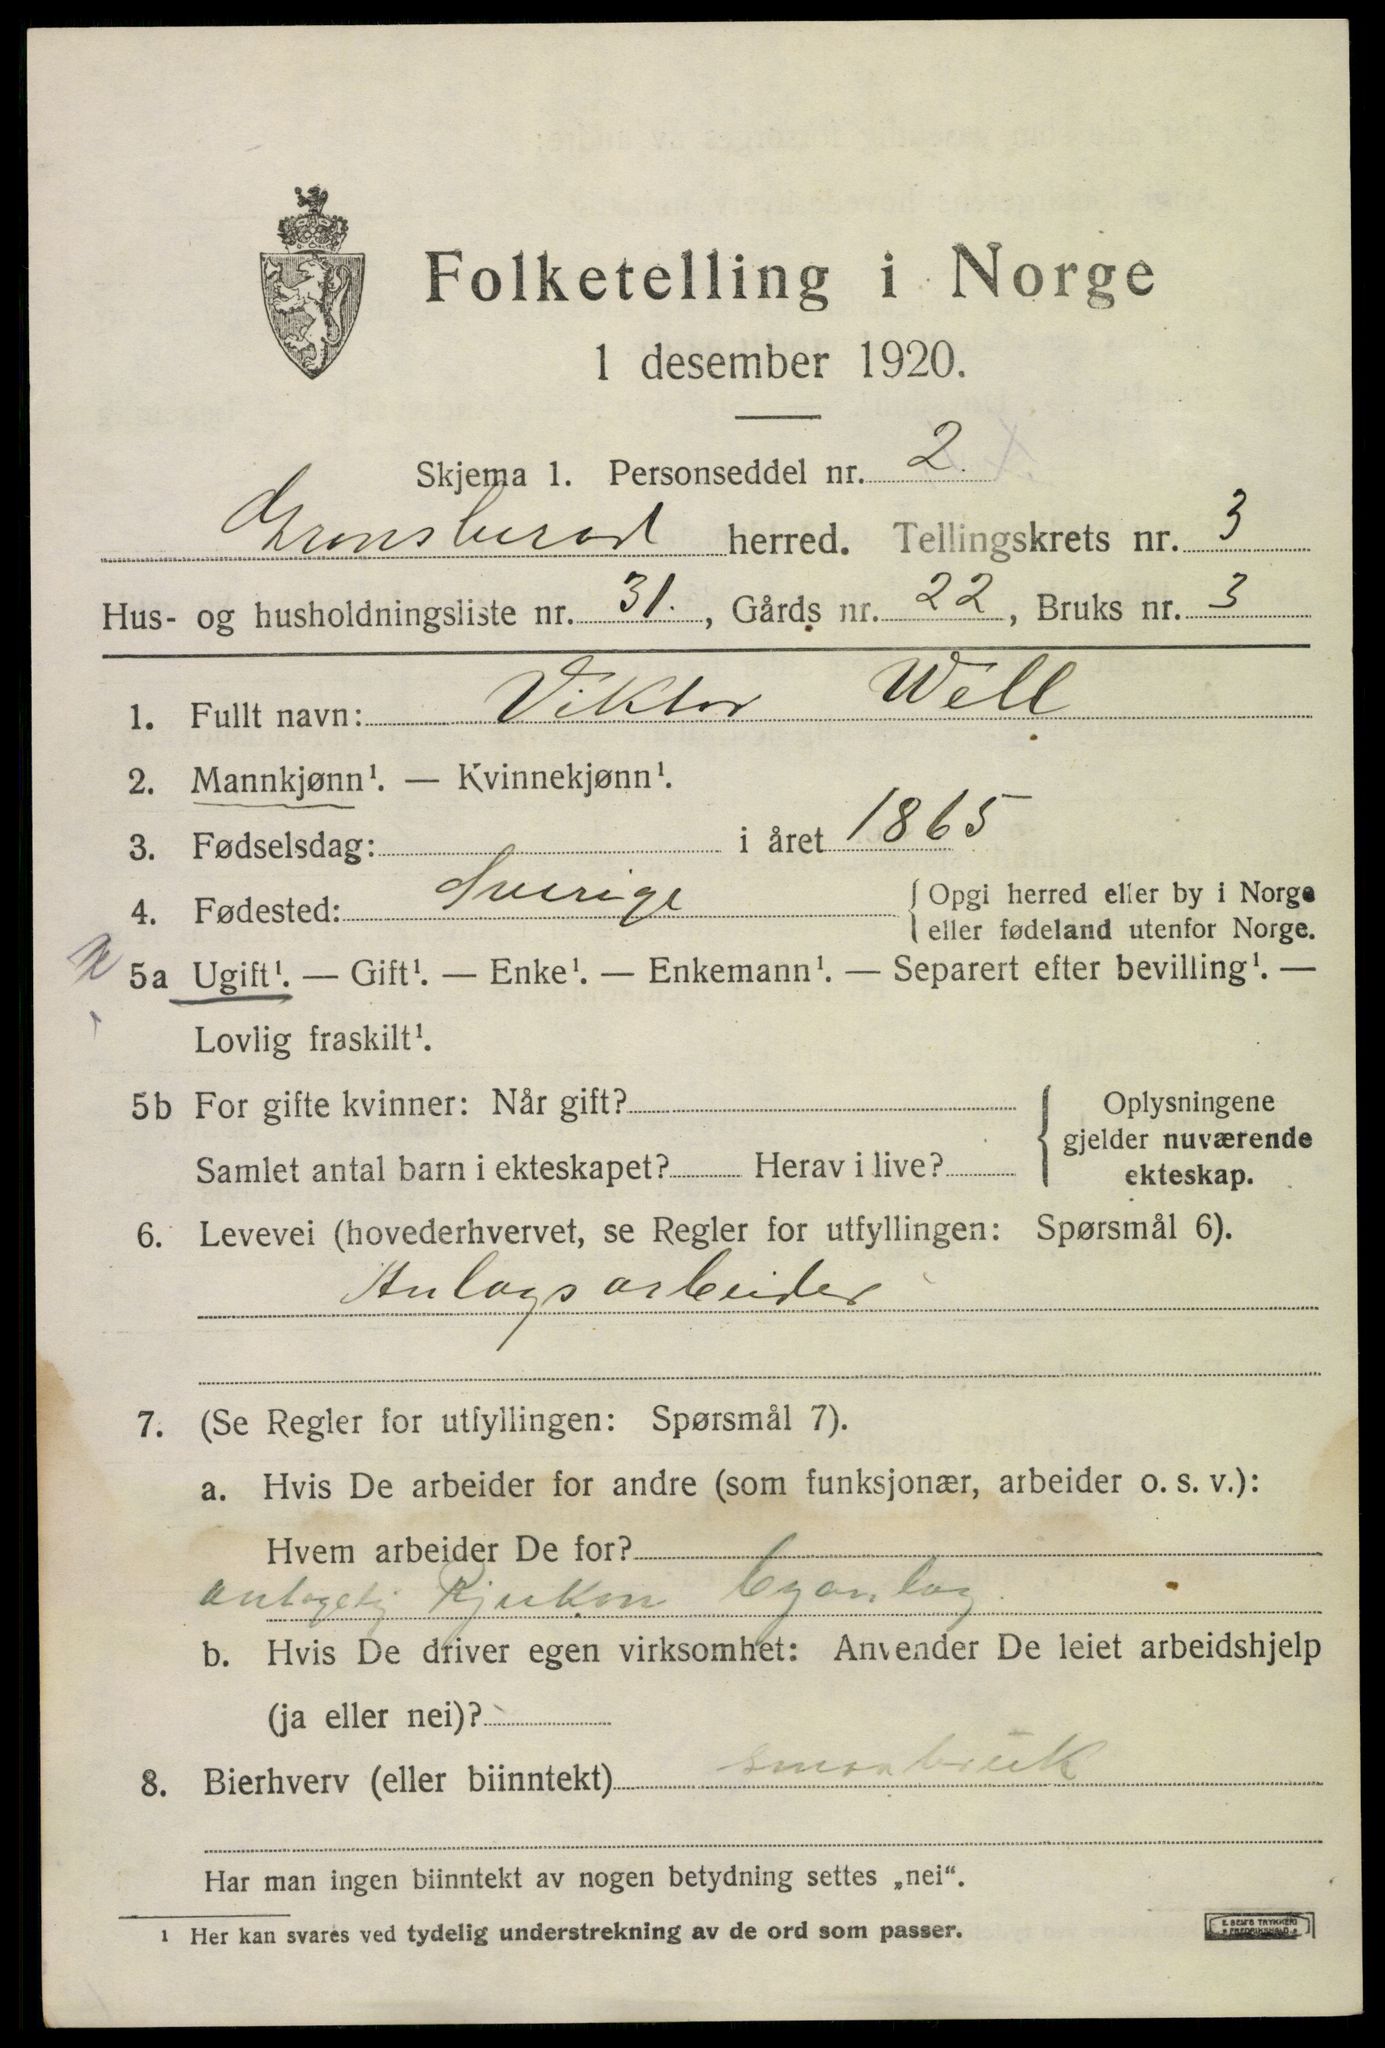 Folketelling i Norge
1 desember 1920.
Skjema 1. Personseddel nr. 2.
herred. Tellingskrets nr. 3
Hus- og husholdningsliste nr. 31., Gårds nr. 22, Bruks nr. 3
1. Fullt navn: Viktor Well
2. Mannkjønn¹. — Kvinnekjønn¹.
3. Fødselsdag: i året 1865
4. Fødested: Sverige { Opgi herred eller by i Norge
eller fødeland utenfor Norge.
x 5a Ugift¹. — Gift¹. — Enke¹. — Enkemann¹. — Separert efter bevilling¹. —
Lovlig fraskilt¹.
5b For gifte kvinner: Når gift? { Oplysningene
gjelder nuværende
Samlet antal barn i ekteskapet? Herav i live?
ekteskap.
6. Levevei (hovederhvervet, se Regler for utfyllingen: Spørsmål 6).
Anlagsarbeider
7. (Se Regler for utfyllingen: Spørsmål 7).
a. Hvis De arbeider for andre (som funksjonær, arbeider o. s. v.):
Hvem arbeider De for?
Rjukon
b. Hvis De driver egen virksomhet: Anvender De leiet arbeidshjelp
(ja eller nei)?
8. Bierhverv (eller biinntekt) smaabruk
Har man ingen biinntekt av nogen betydning settes „nei“.
¹ Her kan svares ved tydelig understrekning av de ord som passer.
E. SEM'S TRYKKERI
FREDRIKSHALD